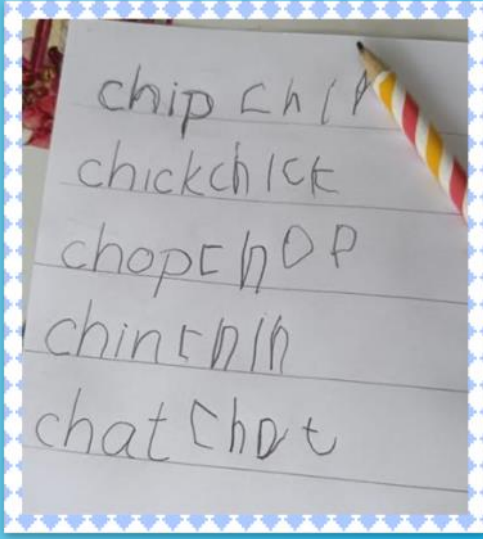 chip chip
chick chick
chop chop
chin chin
chat chat